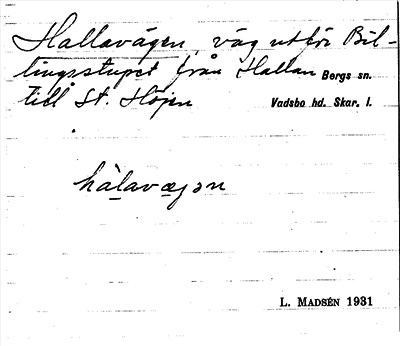 Hallavägen, väg utför Bil-
lingsstupet från Hallan Bergs sn.
till St. Höjen Vadsbo hd. Skar. l.
hàlavægən
L. MADSÉN 1931